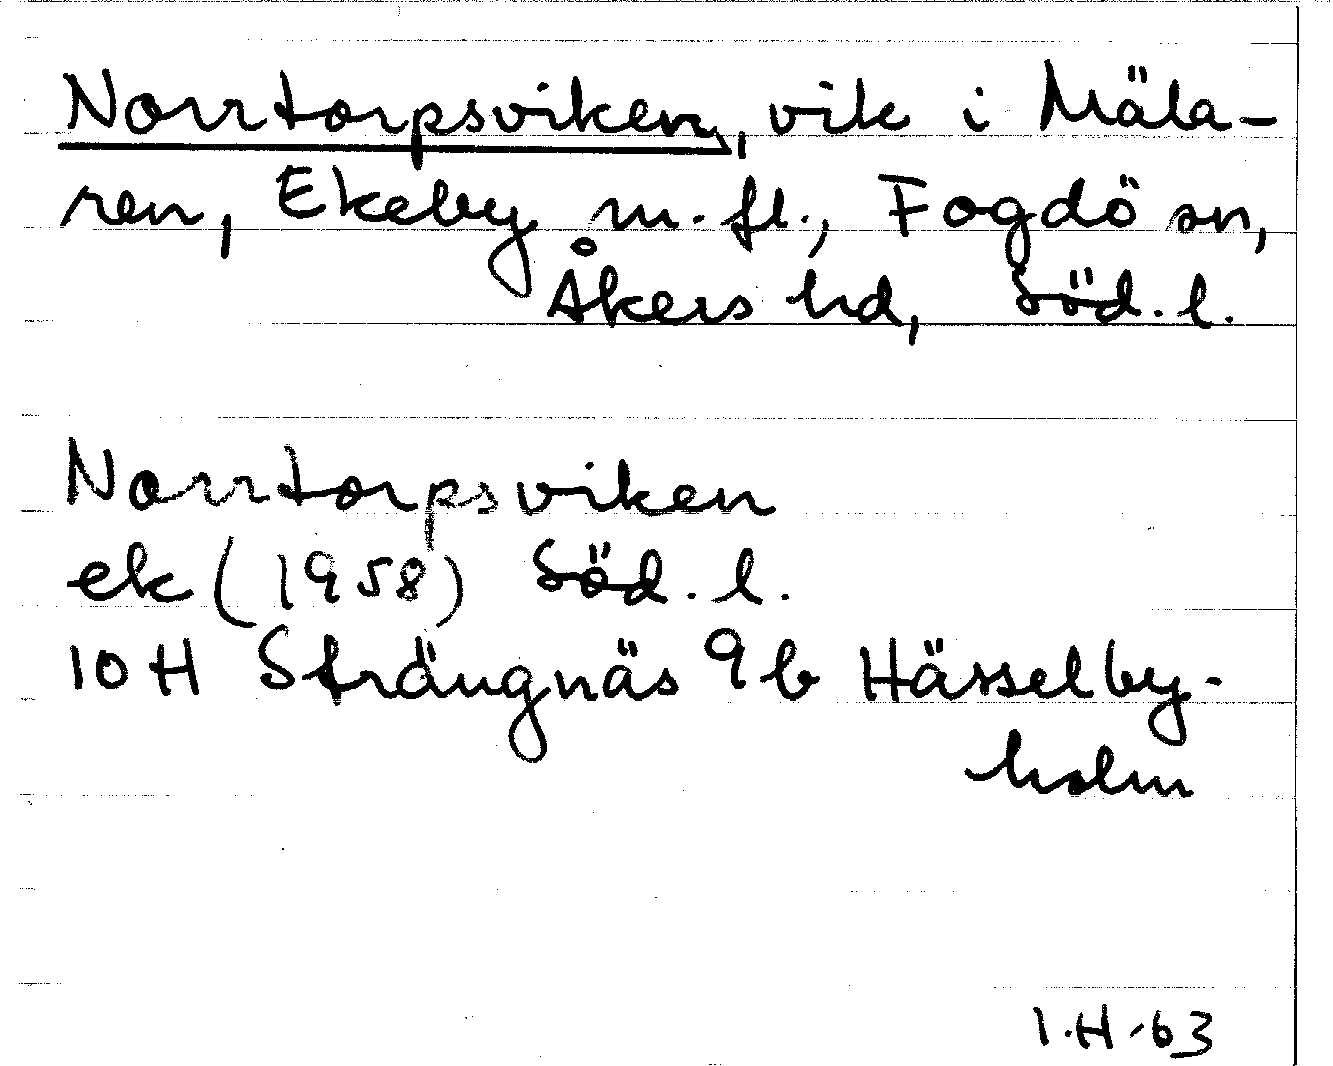 Norrtorpsviken, vik i Mäla-
ren, Ekeby m.fl., Fogdö sn,
Åkers hd, Söd.l.
Norrtorpsviken
ek (1958) Söd.l.
10 H Strängnäs 9b Hässelby-
holm
I.H-63